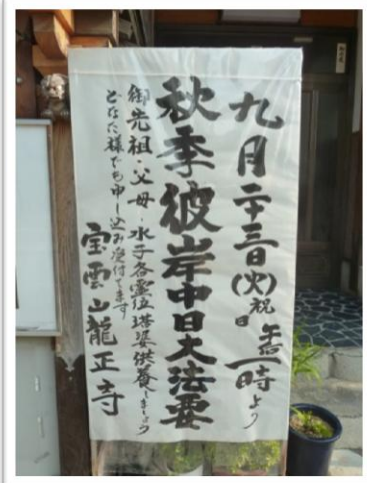 九月二十三日(火)祝日 午后一時より
秋季彼岸中日大法要
御先祖・父母・水子各霊位塔婆供養しましょう
どなた様でも申し込み受付てます
宝雲山龍正寺